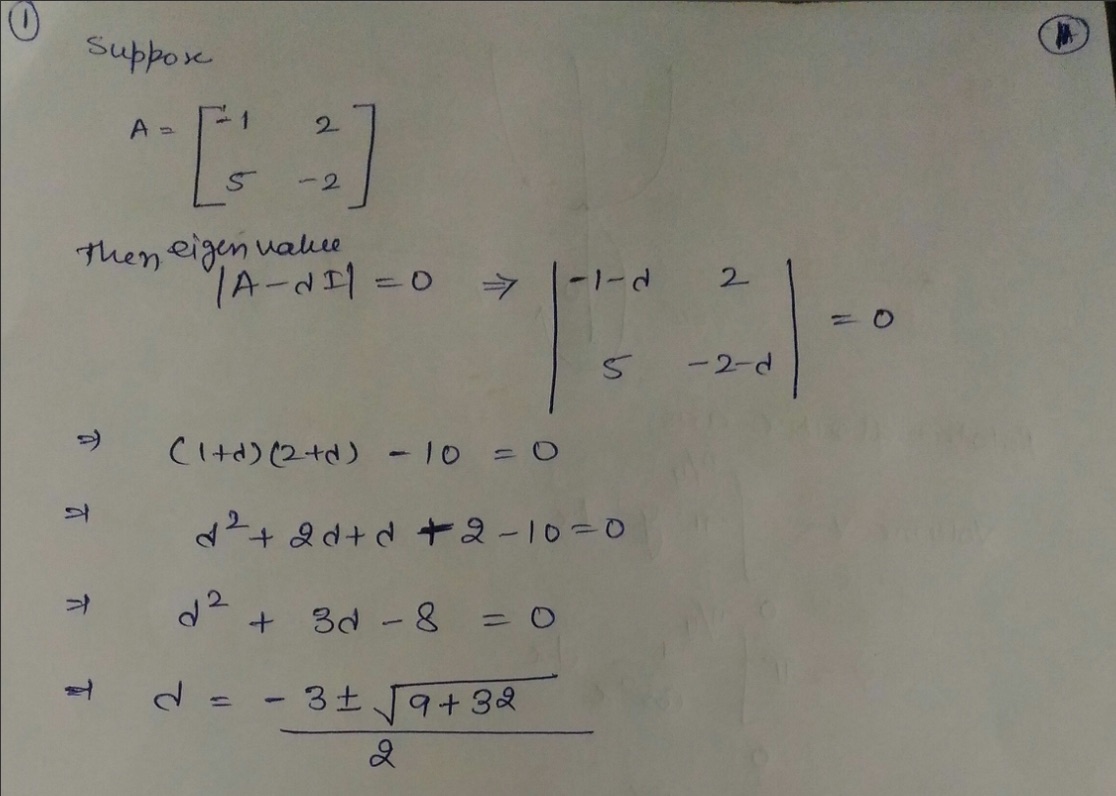 ①
Suppose
A = [ -1 2
5 -2 ]
Then eigen value
|A-dI| = 0 ⇒ | -1-d 2
5 -2-d | = 0
⇒ (1+d)(2+d) - 10 = 0
⇒ d² + 2d+d + 2 - 10 = 0
⇒ d² + 3d - 8 = 0
⇒ d = (-3 ± √(9+32)) / 2